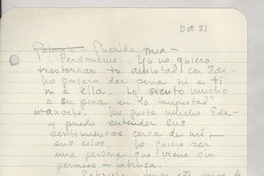 Oct 21
Querida mia –
Perdóname. Yo no quiero
trastornar tu amistad con Ede-
no quiero dar pena ni a ti
ni a ella. Lo siento mucho
a su pena en la
anoche. Me gusta mucho Ede-
y puedo entender sus
sentimientos cerca de mí –
sus celos. No quiero ser
una persona que viene sin
permiso – intrusa.